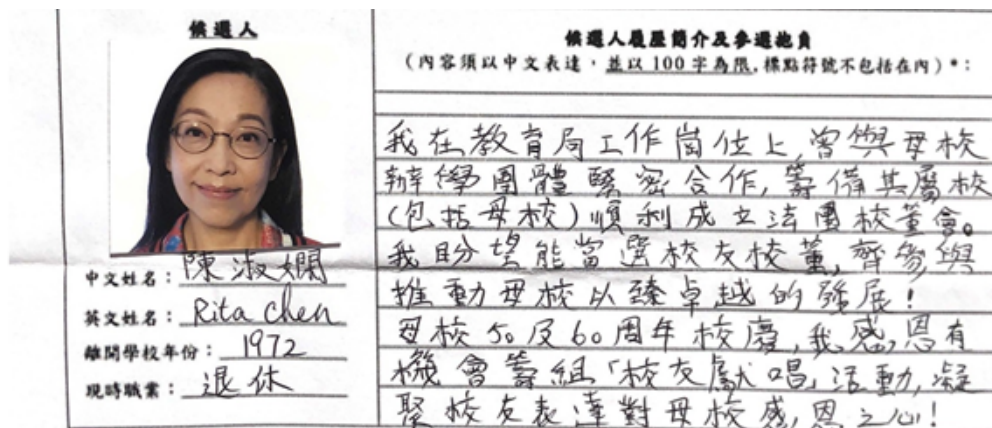 候選人
中文姓名：陳淑嫻
英文姓名：Rita Chen
離開學校年份：1972
現時職業：退休
候選人履歷簡介及參選抱負
（內容須以中文表達，並以 100 字為限，標點符號不包括在內）*：
我在教育局工作崗位上，曾與母校
辦學團體緊密合作，籌備其屬校
(包括母校)順利成立法團校董會。
我盼望能當選校友校董，齊參與
推動母校以臻卓越的發展！
母校50及60周年校慶，我感恩有
機會籌組「校友獻唱」活動，凝
聚校友表達對母校感恩之心！